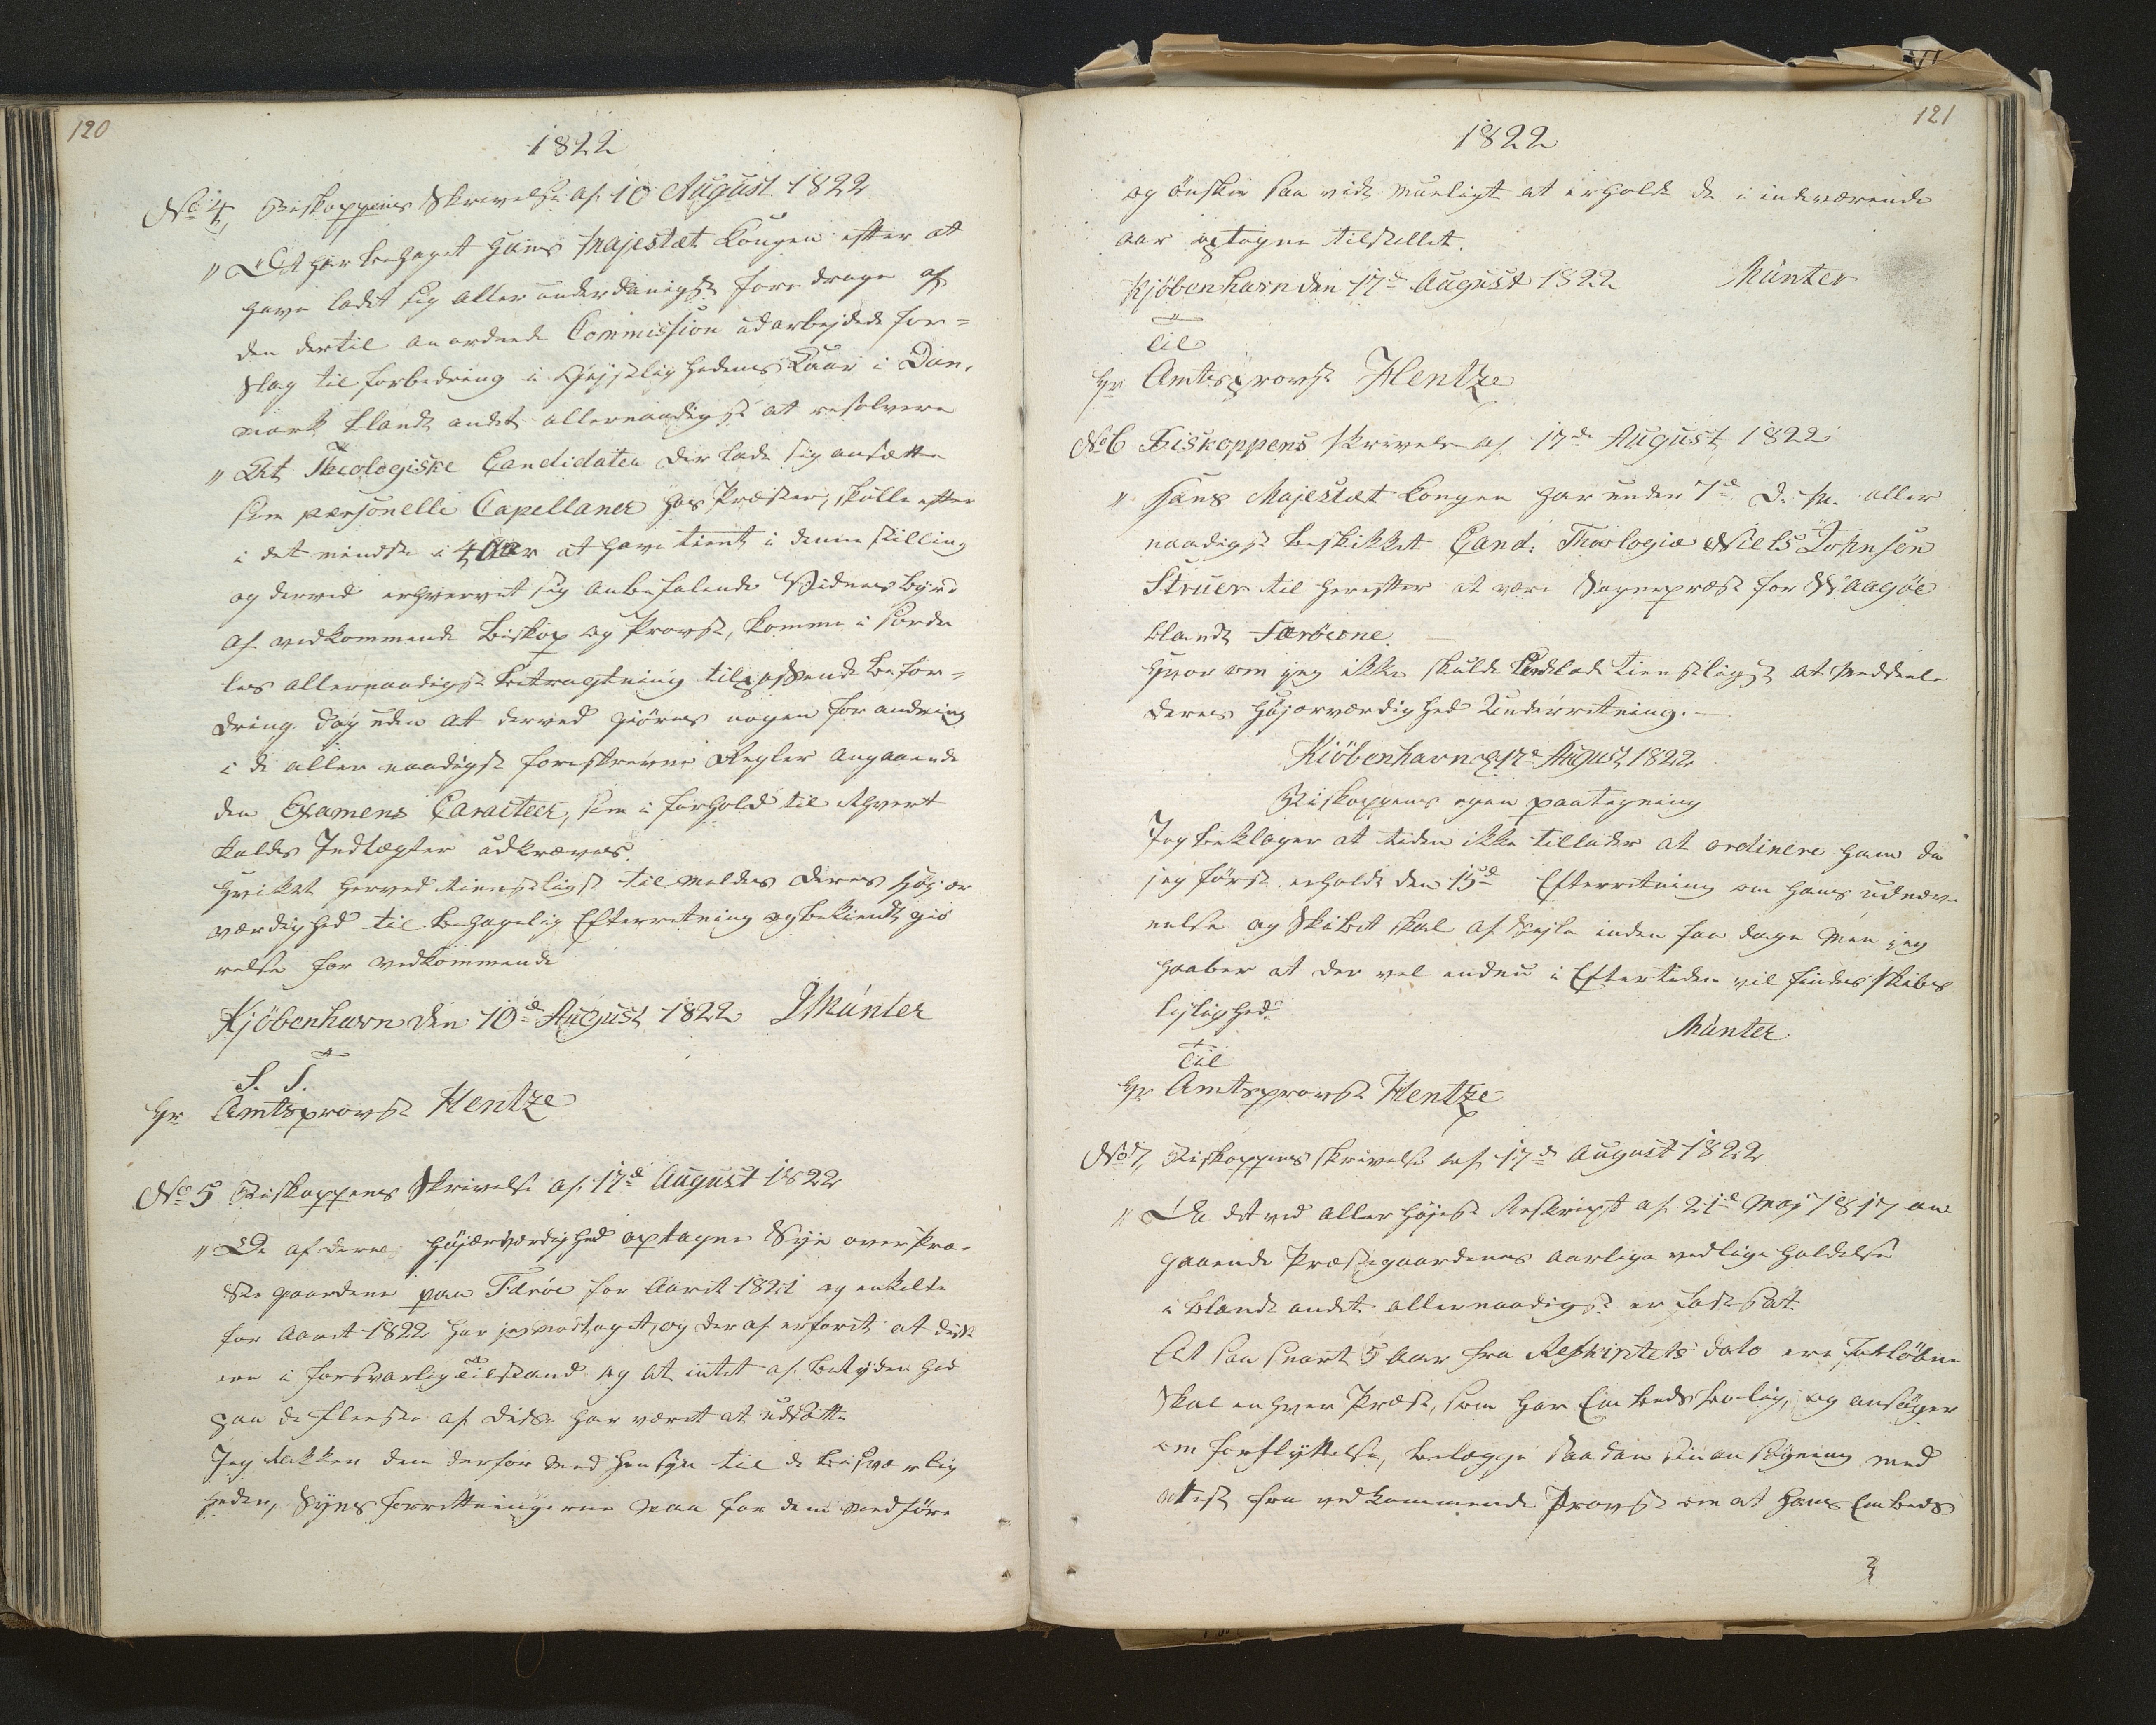 120
1822
No 4, Biskoppens Skrivelse af 10 August 1822
" Det har behaget Hans Majestæt Kongen efter at
have ladet sig allerunderdanigst foredrage af
den dertil anordnede Commission udarbejdede for=
slag til forbedring i Gejstlighedens Kaar i Dan,
mark blandt andet allernaadigst at resolvere
" At Theologiske Candidater der lade sig ansætte
som personelle Capellaner hos Præster, skulle efter
i det mindste i 4 Aar at have tient i denne stilling
og derved erhvervet sig anbefalende Vidnesbyrd
af vedkommende Biskop og Provst, komme i særde
les allernaadigst betragtning til passende befor=
dring dog uden at derved giøres nogen forandring
i de allernaadigst foreskrevne Regler angaaende
den Examens Caracteer, som i forhold til Ethvert
kalds Indtægter udkræves.
Hvilket herved tienstligst tilmeldes Deres Højær
værdighed til behagelig Efterretning og bekiendtgiö
relse for vedkommende
Kjöbenhavn den 10de August 1822 Münter
S. T.
Hr Amtsprovst Hentze
No 5 Biskoppens Skrivelse af 17d August 1822
" De af Deres Højærværdighed optagne Syn over Præ-
ste gaardene paa Færöe for Aaret 1821 og enkelte
for Aaret 1822 har jeg modtaget, og deraf erfaret at disse
ere i forsvarlig Tilstand og at intet af betydenhed
paa de fleeste af disse har været at udsætte
Jeg takker dem derfor med hensyn til de besværlig
heder, Synsforretningerne maa for dem medföre
121
1822
og önsker saa vidt mueligt at erholde de i indeværende
aar optagne tilstillet.
Kjöbenhavn den 17d August 1822 Münter
Til
Hr Amtsprovst Hentze
No 6 Biskoppens skrivelse af 17de August 1822
" Hans Majestæt Kongen har under 7d d. M. aller
naadigst beskikket Cand. Theologiæ Niels Johnsen
Struer til herefter at være Sognepræst for Waagöe
blandt Færöerne
Hvorom jeg ikke skulde undlade tienstligst at meddeele
Deres Højærværdighed Underretning.
Kiöbenhavn d 17d August 1822
Biskoppens egen paategning
Jeg beklager at tiden ikke tillader at ordinere ham da
jeg först erholdt den 15d Efterretning om hans udnæv-
nelse og Skibet skal afsejle inden faa dage men jeg
haaber at der vel endnu i Eftertiden vil findes skibs
lejlighed.
Münter
Til
Hr Amtsprovst Hentze
No 7, Biskoppens skrivelse af 17d August 1822
" Da det ved allerhöjest Reskript af 21d Maj 1817 an
gaaende Præstegaardenes aarlige vedligeholdelse
iblandt andet allernaadigst er fastsat
At saa snart 5 Aar fra Reskriptets dato ere forlöbne
skal enhver Præst, som har Embedsbolig, og ansöger
om forflyttelse, belægge saadan sin ansögning med
attest fra vedkommende Provst om at hans Embeds